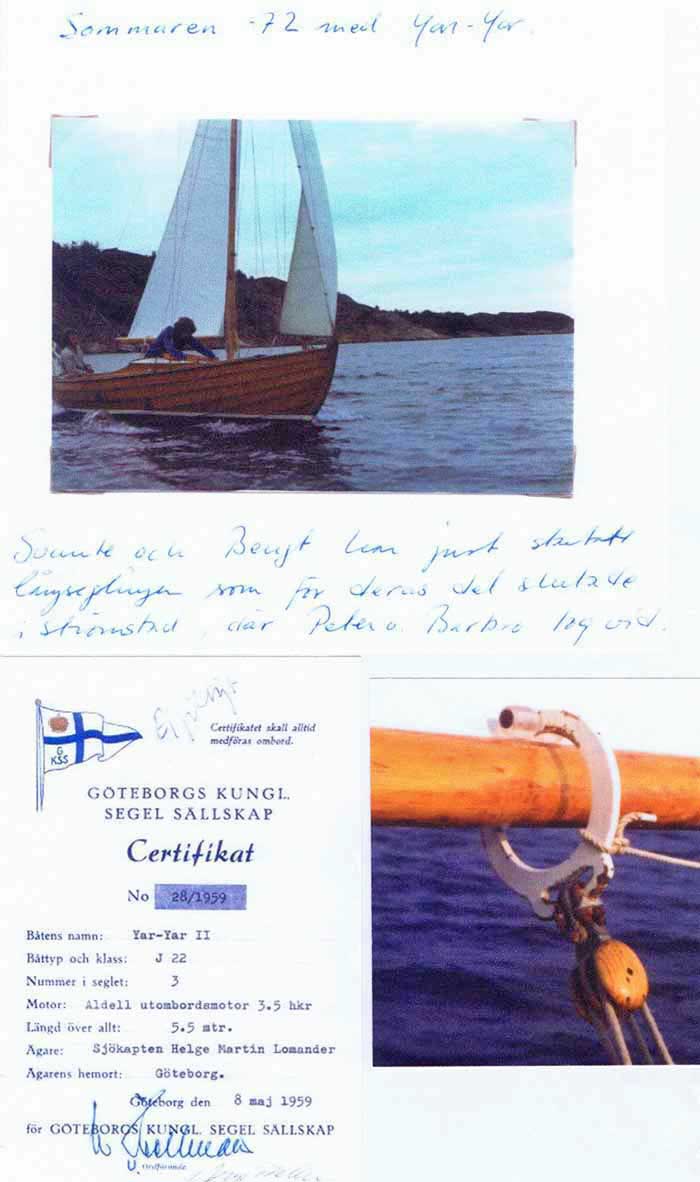 Sommaren -72 med Yar-Yar.
Sonnte och Bengt har just startat
långseglingen som för deras del slutade
i Strömstad, där Peter o. Barbro tog vid.
G
KSS
Certifikatet skall alltid
medföras ombord.
GÖTEBORGS KUNGL.
SEGEL SÄLLSKAP
Certifikat
No 28/1959
Båtens namn: Yar-Yar II
Båttyp och klass: J 22
Nummer i seglet: 3
Motor: Aldell utombordsmotor 3.5 hkr
Längd över allt: 5.5 mtr.
Ägare: Sjökapten Helge Martin Lomander
Ägarens hemort: Göteborg.
Göteborg den 8 maj 1959
för GÖTEBORGS KUNGL. SEGEL SÄLLSKAP
Ordförande